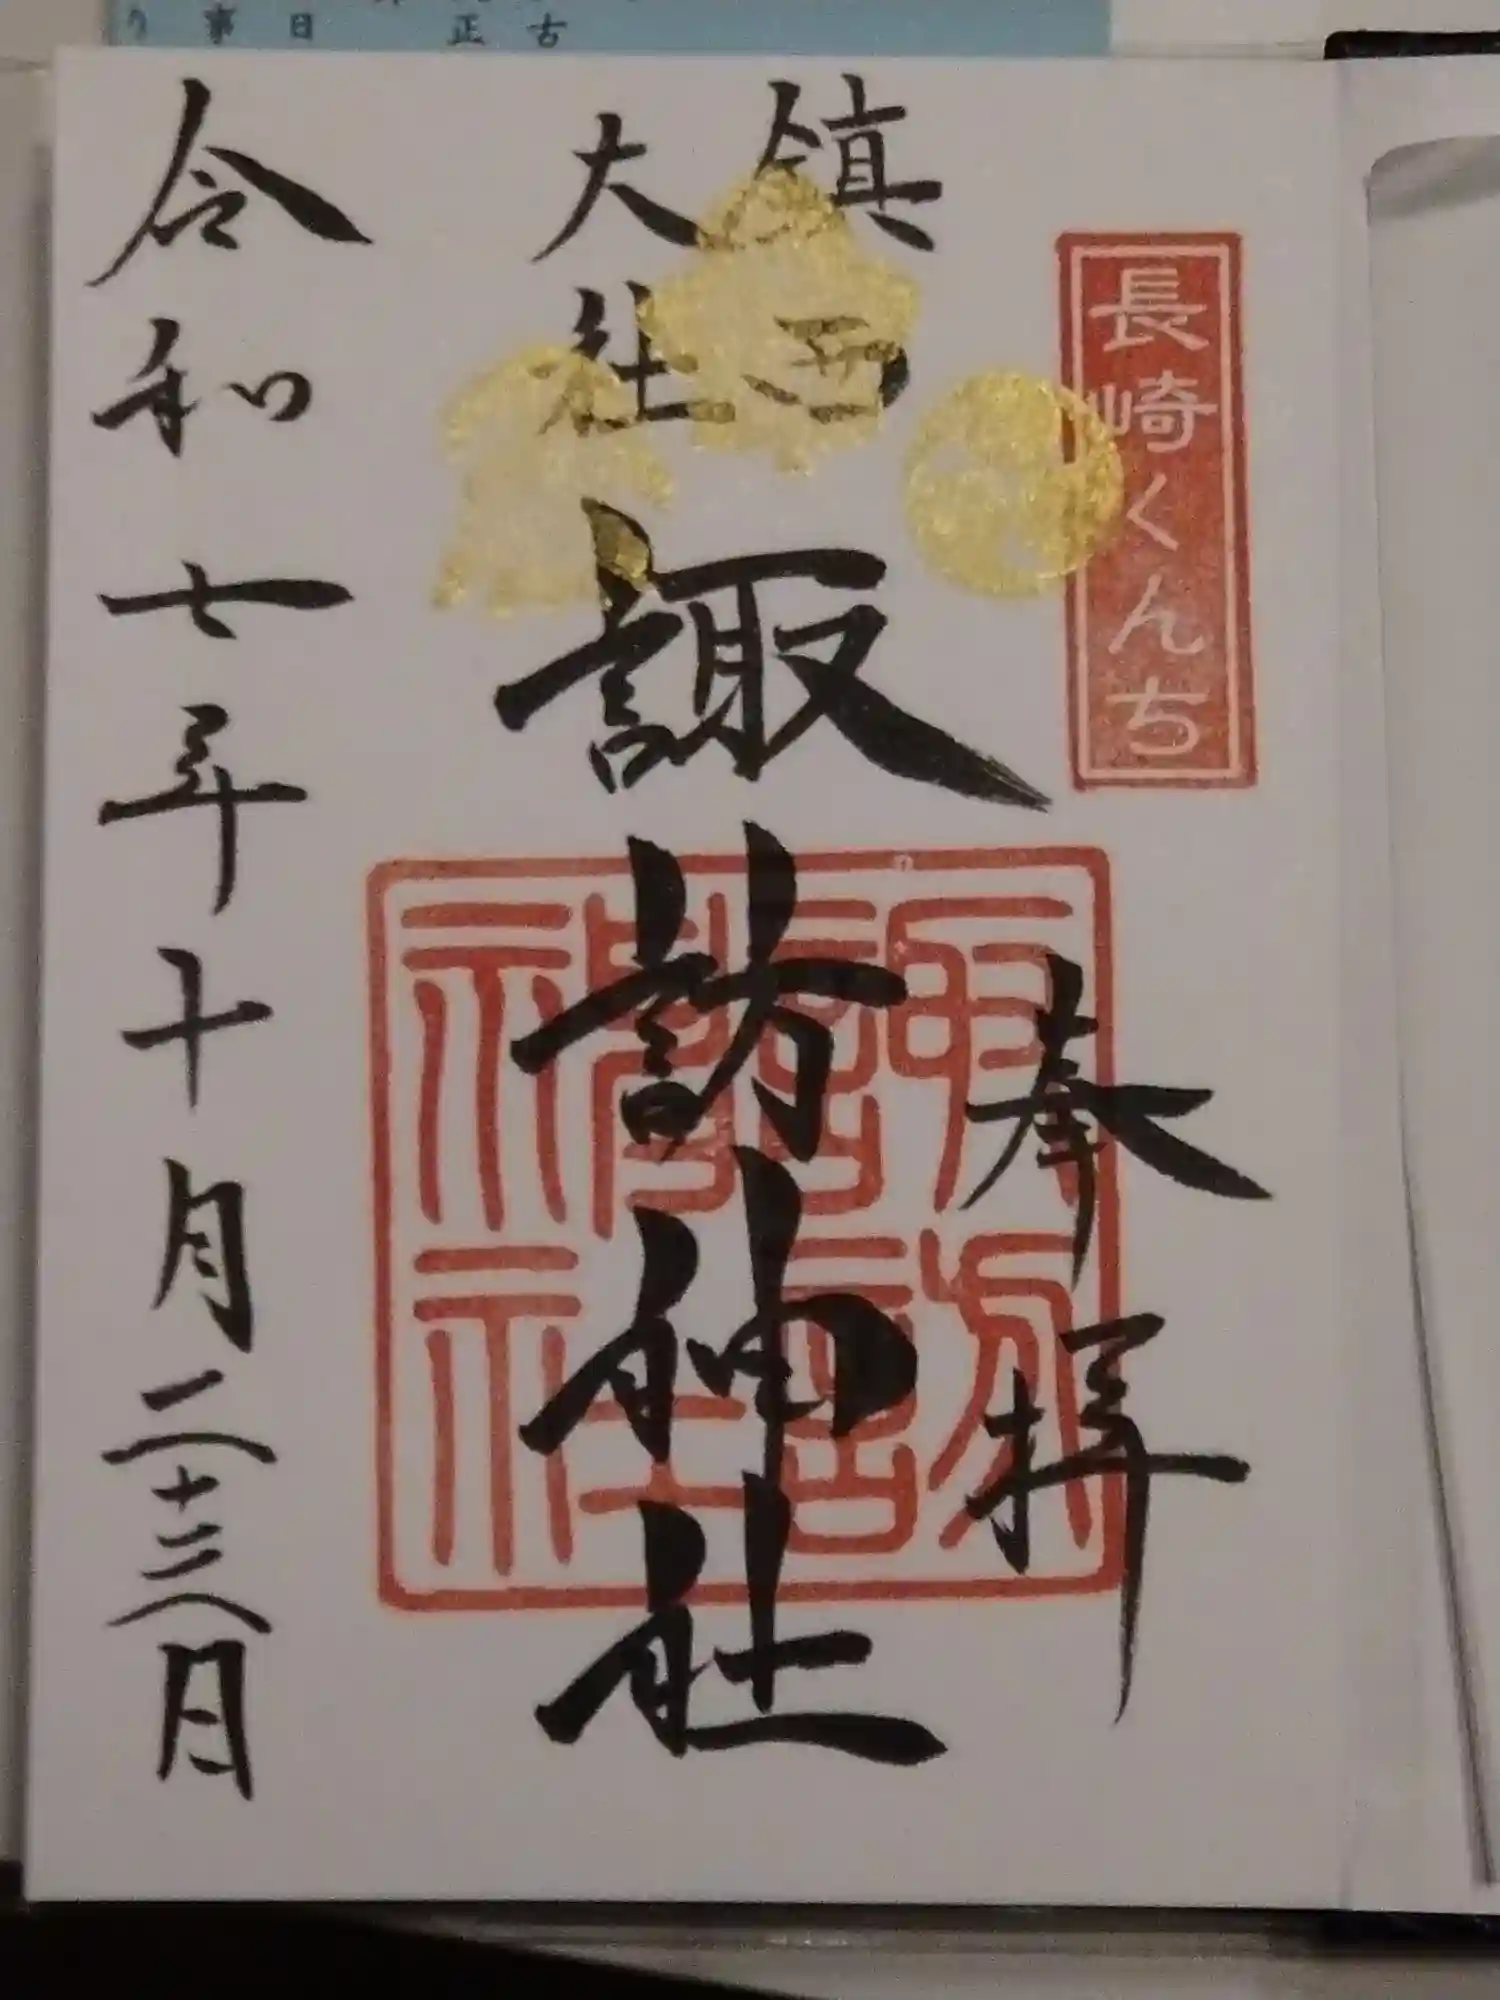 長崎くんち
奉拝
鎮西
大社
諏訪神社
諏訪
神社
令和七年十月二十三日